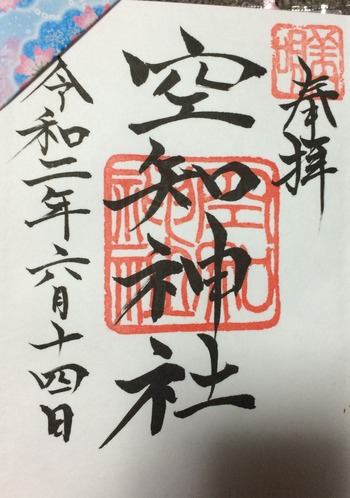 美唄
奉拝
空知神社
空知
神社
令和二年六月十四日